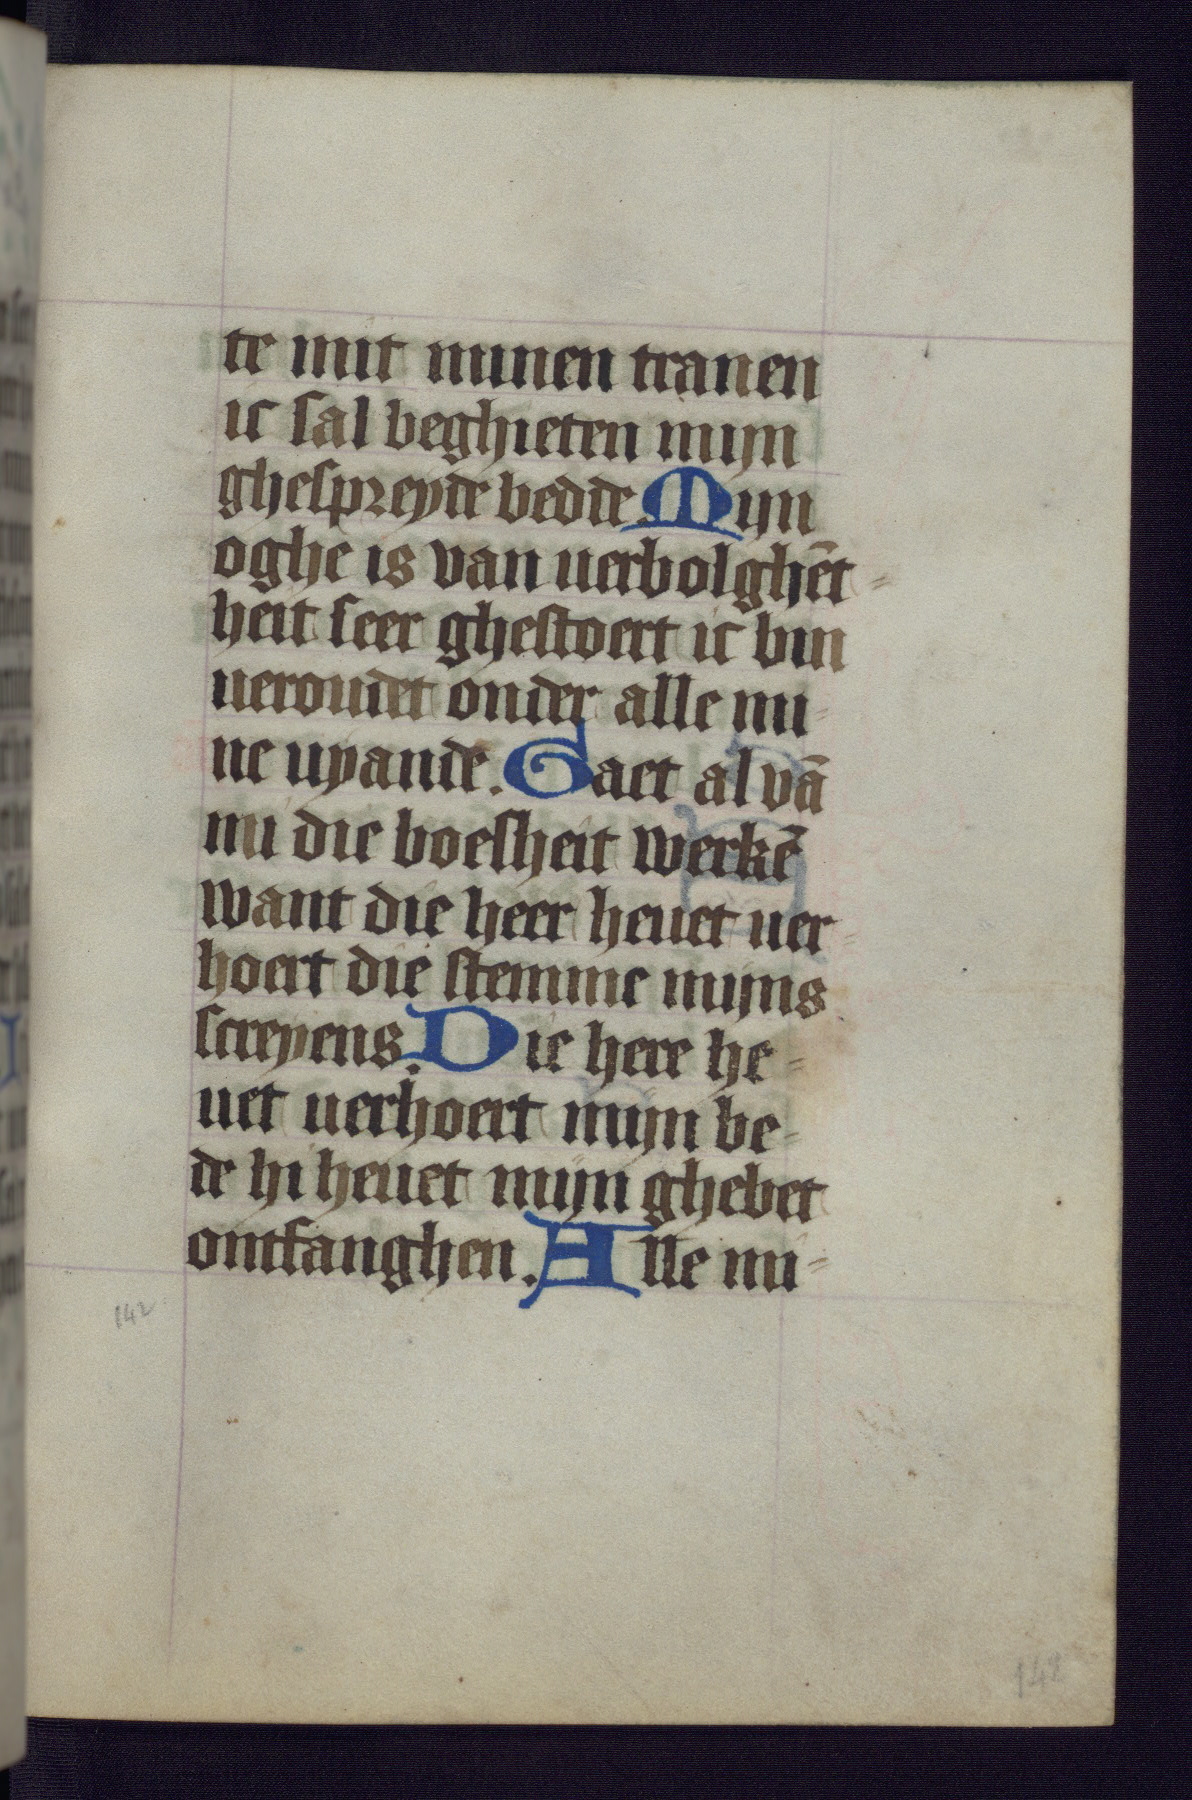 te mit minen tranen
ic sal beghieten mijn
ghespreyde bedde. Mijn
oghe is van uerbolghēt=
heit seer ghestoert ic bin
ueroudet onder alle mi=
ne uyande. Gaet al vā
mi die boesheit werkē
want die heer heuet uer=
hoert die stemme mijns
screyens. Die here he=
uet uerhoert mijn be=
de hi heuet mijn ghebet
ontfanghen. Alle mi=
142
142